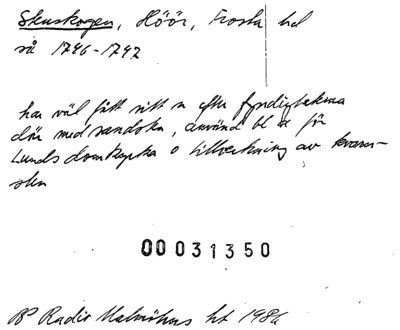 Skuskogen, Höör, Frosta hd
så 1746-1747
har väl fått sitt n efter fyndigheterna
där med sandsten, använd bl a för
Lunds domkyrka o tillverkning av kvarn-
sten
00031350
BP Radio Malmöhus ht 1986